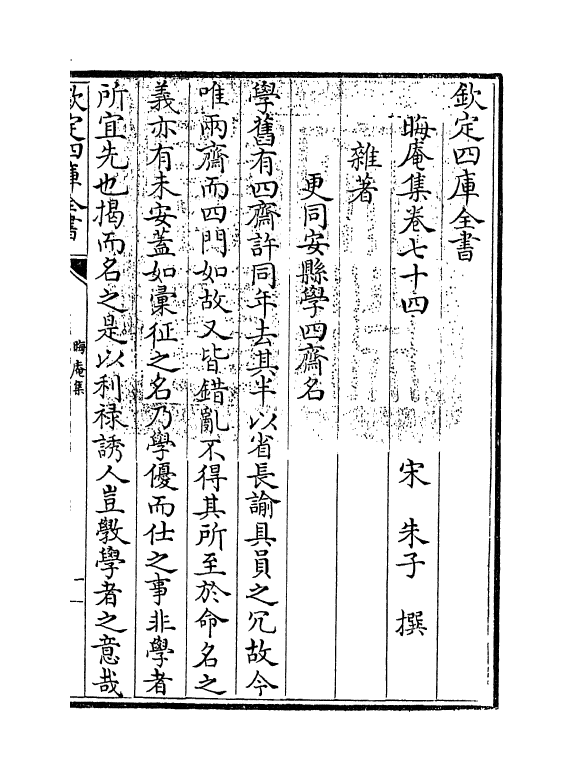 欽定四庫全書
晦庵集卷七十四
宋 朱子 撰
雜著
更同安縣學四齋名
學舊有四齋許同年去其半以省長諭具員之冗故今
唯兩齋而四門如故又皆錯亂不得其所至於命名之
義亦有未安蓋如彙征之名乃學優而仕之事非學者
所宜先也揭而名之是以利祿誘人豈教學者之意哉
欽定四庫全書
晦庵集
一